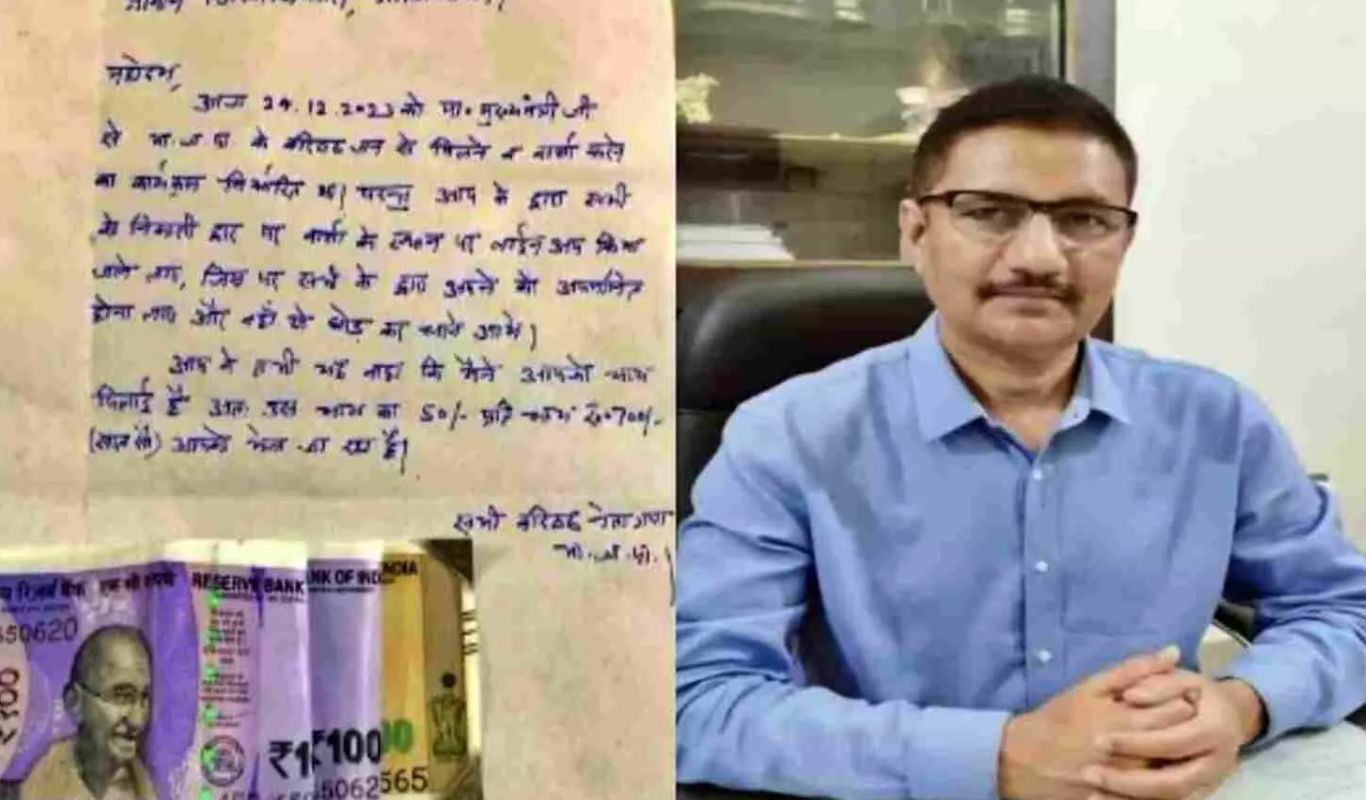 महोदय,
आज 24.12.2023 को मा० मुख्यमंत्री जी
से भा.ज.पा. के वरिष्ठ जन से मिलने व वार्ता करने
का कार्यक्रम निर्धारित था। परन्तु आप के द्वारा सभी
को निकासी द्वार पर वार्ता के स्थान पर लाईन अप किया
जाने लगा, जिस पर सभी के द्वारा अपने को अपमानित
होना लगा और वहाँ से छोड़ कर चले आये।
आप ने सभी यह कहा कि मैंने आपको चाय
पिलाई है अतः उस चाय का 50/- प्रति चाय रु०700/-
(सात सौ) आपको भेजा जा रहा है।
सभी वरिष्ठ नेता गण
भा.ज.पा.
रिज़र्व बैंक एक सौ रुपये RESERVE BANK BANK OF INDIA INDIA
550620
₹100
₹1 ₹100 00
5062 565